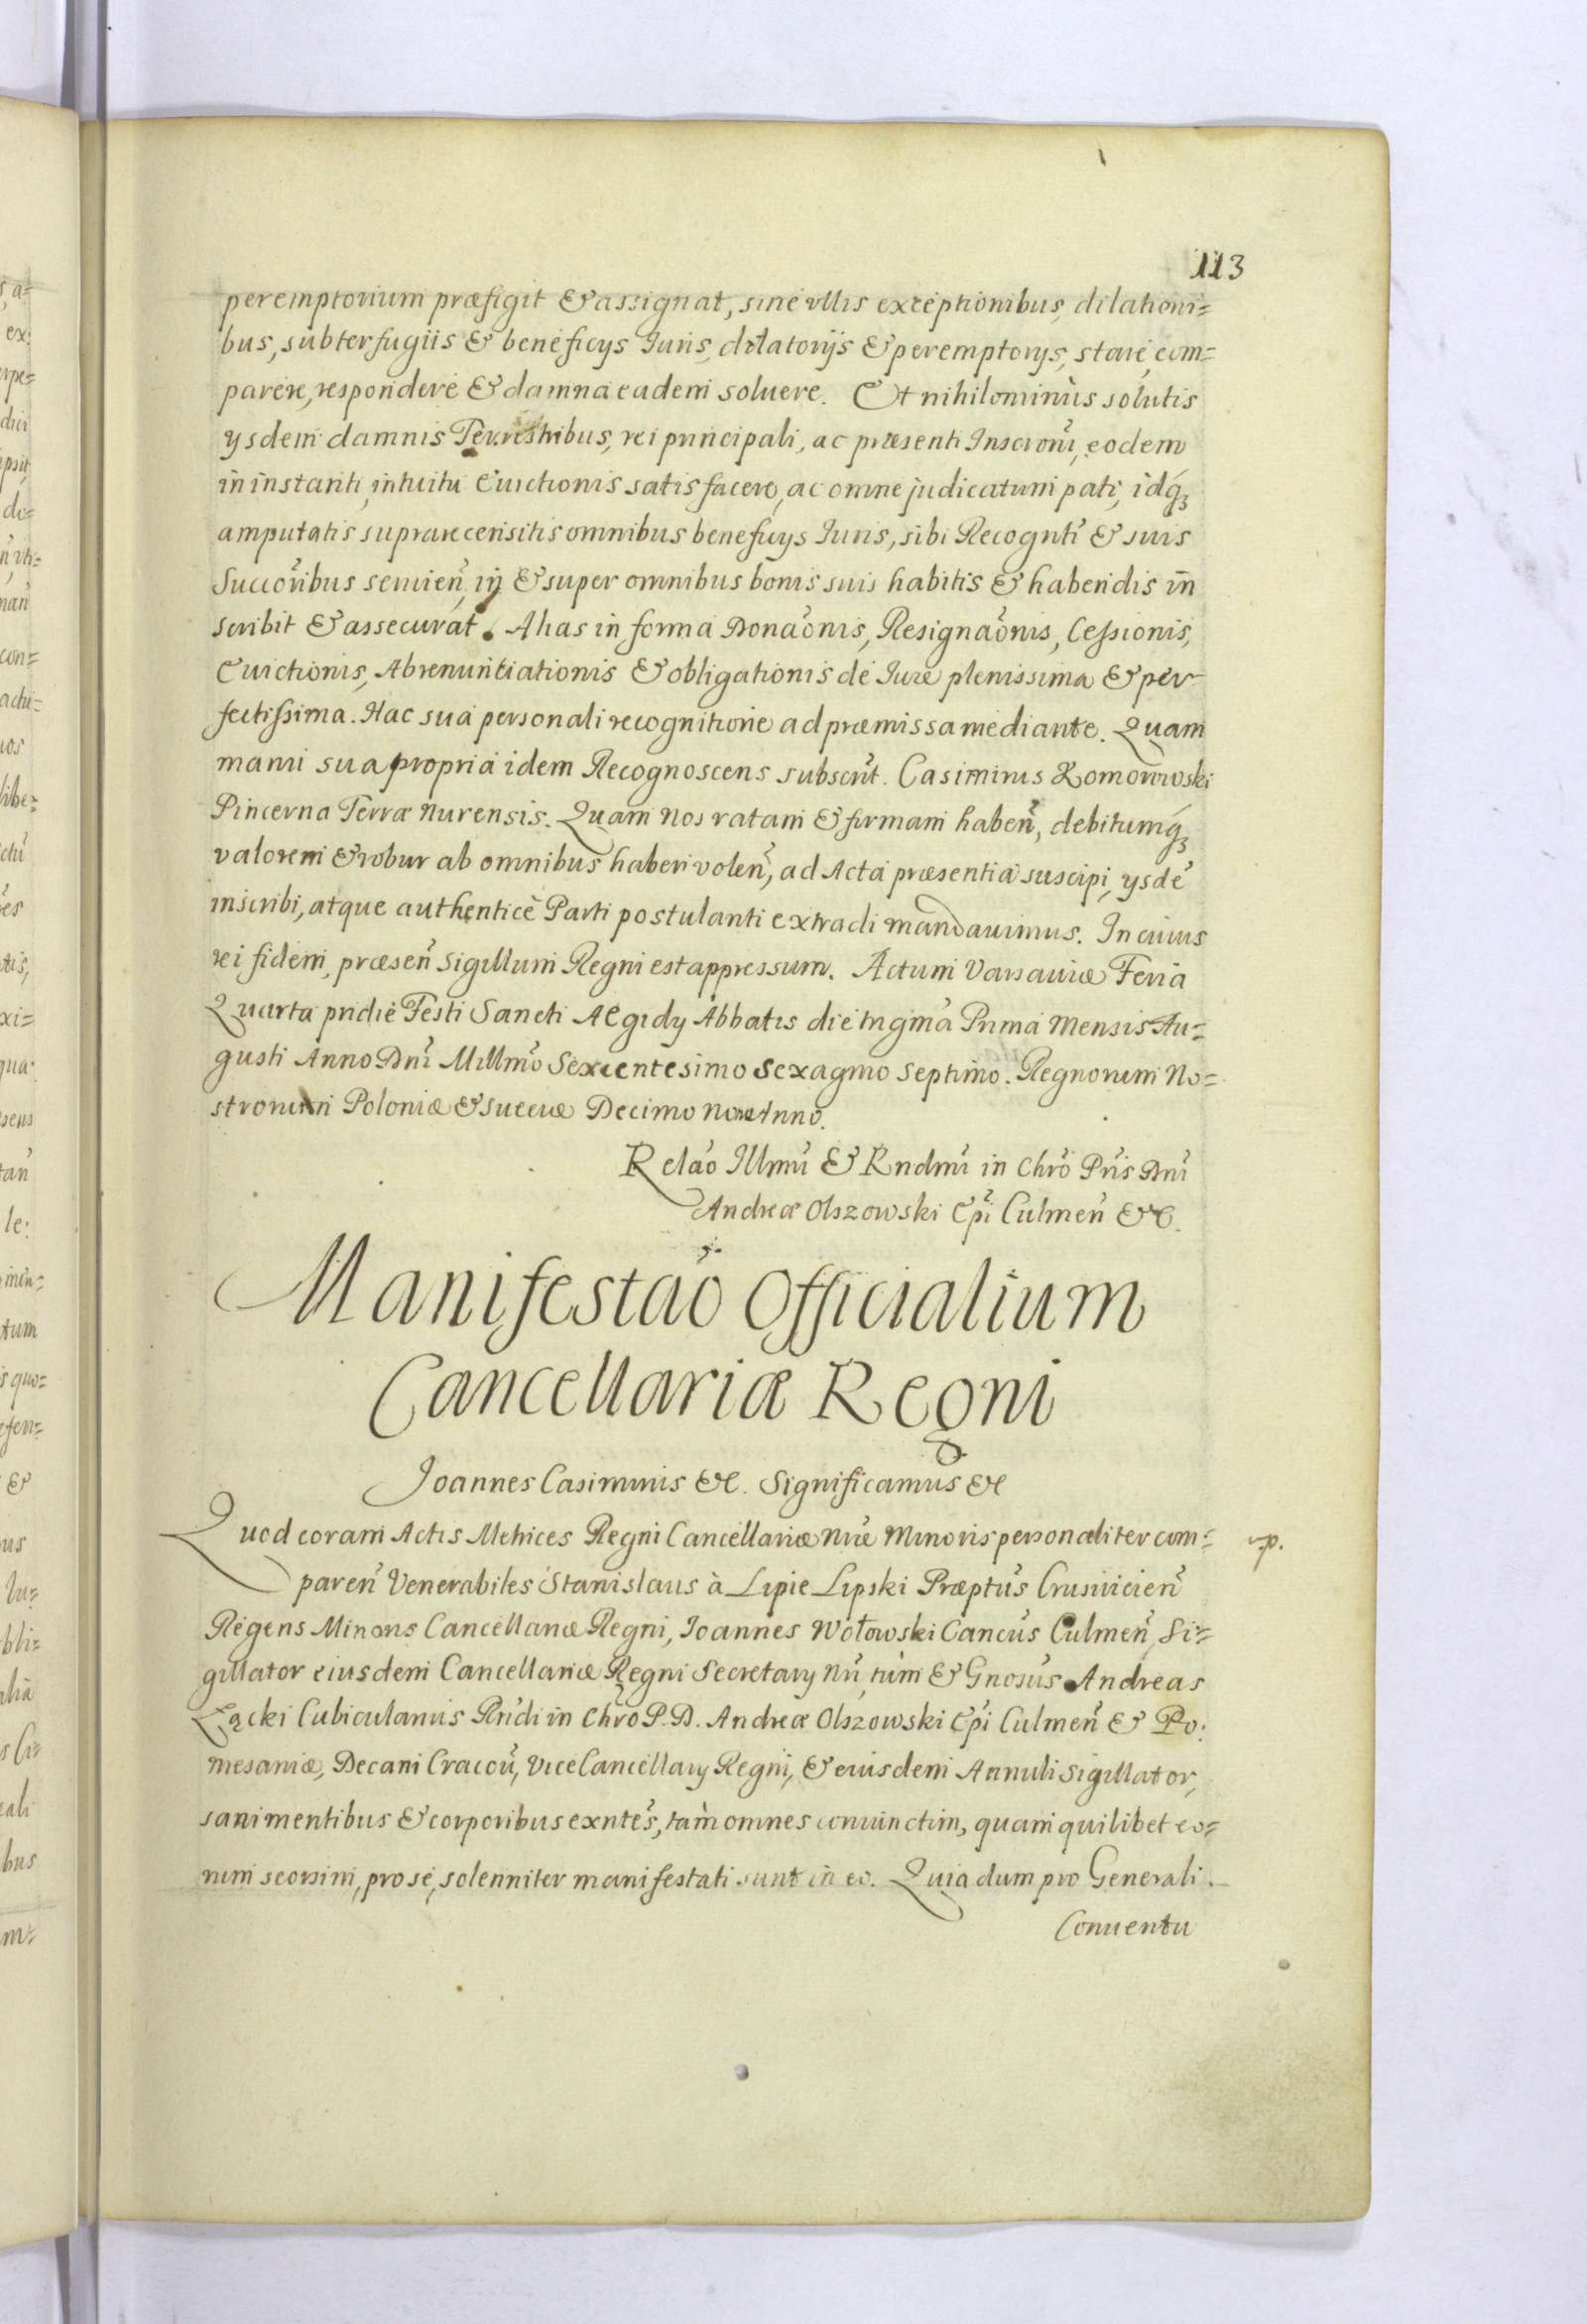 113
peremptorium præfigit & assignat, sine ullis exceptionibus, dilationi=
bus, subterfugiis & beneficys Iuris, dilatorijs & peremptorys, stare, com=
parere, respondere & damna eadem soluere. Et nihilominùs solutis
ysdem damnis Terrestribus, rei principali, ac præsenti Inscrõni, eodem
in instanti, intuitu Euictionis satisfacere, ac omne judicatum pati, idq́ꝫ
amputatis suprarecensitis omnibus beneficys Iuris, sibi Recognti̋ & suis
Succoribus̃ seruien̄, in & super omnibus bonis suis habitis & habendis in
scribit & assecurat. Alias in forma Donaõnis, Resignaõnis, Cessionis,
Euictionis, Abrenuntiationis & obligationis de Iure plenissima & per
fectissima. Hac sua personali recognitione ad præmissa mediante. Quam
manu sua propria idem Recognoscens subscrĩt. Casimirus Komorowski
Pincerna Terræ Nurensis. Quam Nos ratam & firmam haben̄, debitumq́ꝫ
valorem & robur ab omnibus haberi volen̄, ad Acta præsentia suscipi, ysdẽ
inscribi, atque authenticè Parti postulanti extradi mandauimus. In cuius
rei fidem, præsen̄ Sigillum Regni est appressum. Actum Varsauiæ Feria
Quarta pridie Festi Sancti Aegidy Abbatis die trigm̃a Prima Mensis Au=
gusti Anno Dnĩ Millmõ Sexcentesimo Sexagmo Septimo. Regnorum No=
strorum Poloniæ & Sueciæ Decimo Nono Anno.
Relaõ Illmĩ & Rndmĩ in Chrõ Prĩs Dnĩ
Andreæ Olszowski Epĩ Culmen̄ &c.
Manifestaõ Officialium
Cancellariæ Regni
Joannes Casimirus &c. Significamus &c
Quod coram Actis Metrices Regni Cancellariæ Nr̃æ Minoris personaliter com=
paren̄ Venerabiles Stanislaus à Lipie Lipski Præptũs Crusuicien̄
Regens Minoris Cancellariæ Regni, Joannes Wołowski Cancũs Culmen̄, Si=
gillator eiusdem Cancellariæ Regni Secretary Nr̃i, tùm & Gnosũs Andreas
Łącki Cubicularius Rn̄di in Chrõ P. D. Andreæ Olszowski Epĩ Culmen̄ & Po:
mesaniæ, Decani Cracou̇̄, ViceCancellary Regni, & eiusdem Annuli Sigillator,
sani mentibus & corporibus exntẽs, tàm omnes coniunctim, quam quilibet eo=
rum seorsim, pro se, solenniter manifestati sunt in eo. Quia dum pro Generali
Conuentu